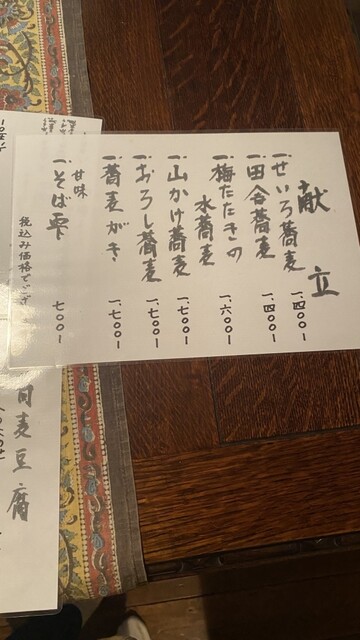 献立
一、せいろ蕎麦 一、四〇〇ー
一、田舎蕎麦 一、四〇〇ー
一、梅たたきの
水蕎麦 一、六〇〇ー
一、山かけ蕎麦 一、七〇〇ー
一、おろし蕎麦 一、七〇〇ー
一、蕎麦がき 一、七〇〇ー
甘味
一、そば雫 七〇〇ー
税込み価格でござ
麦豆腐